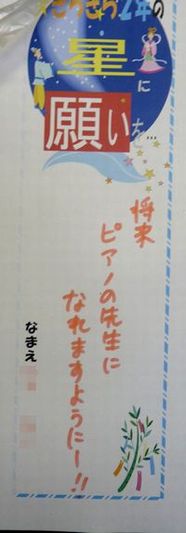 きらきら2年の
星に
願いを…
将来
ピアノの先生に
なれますようにー!!
なまえ